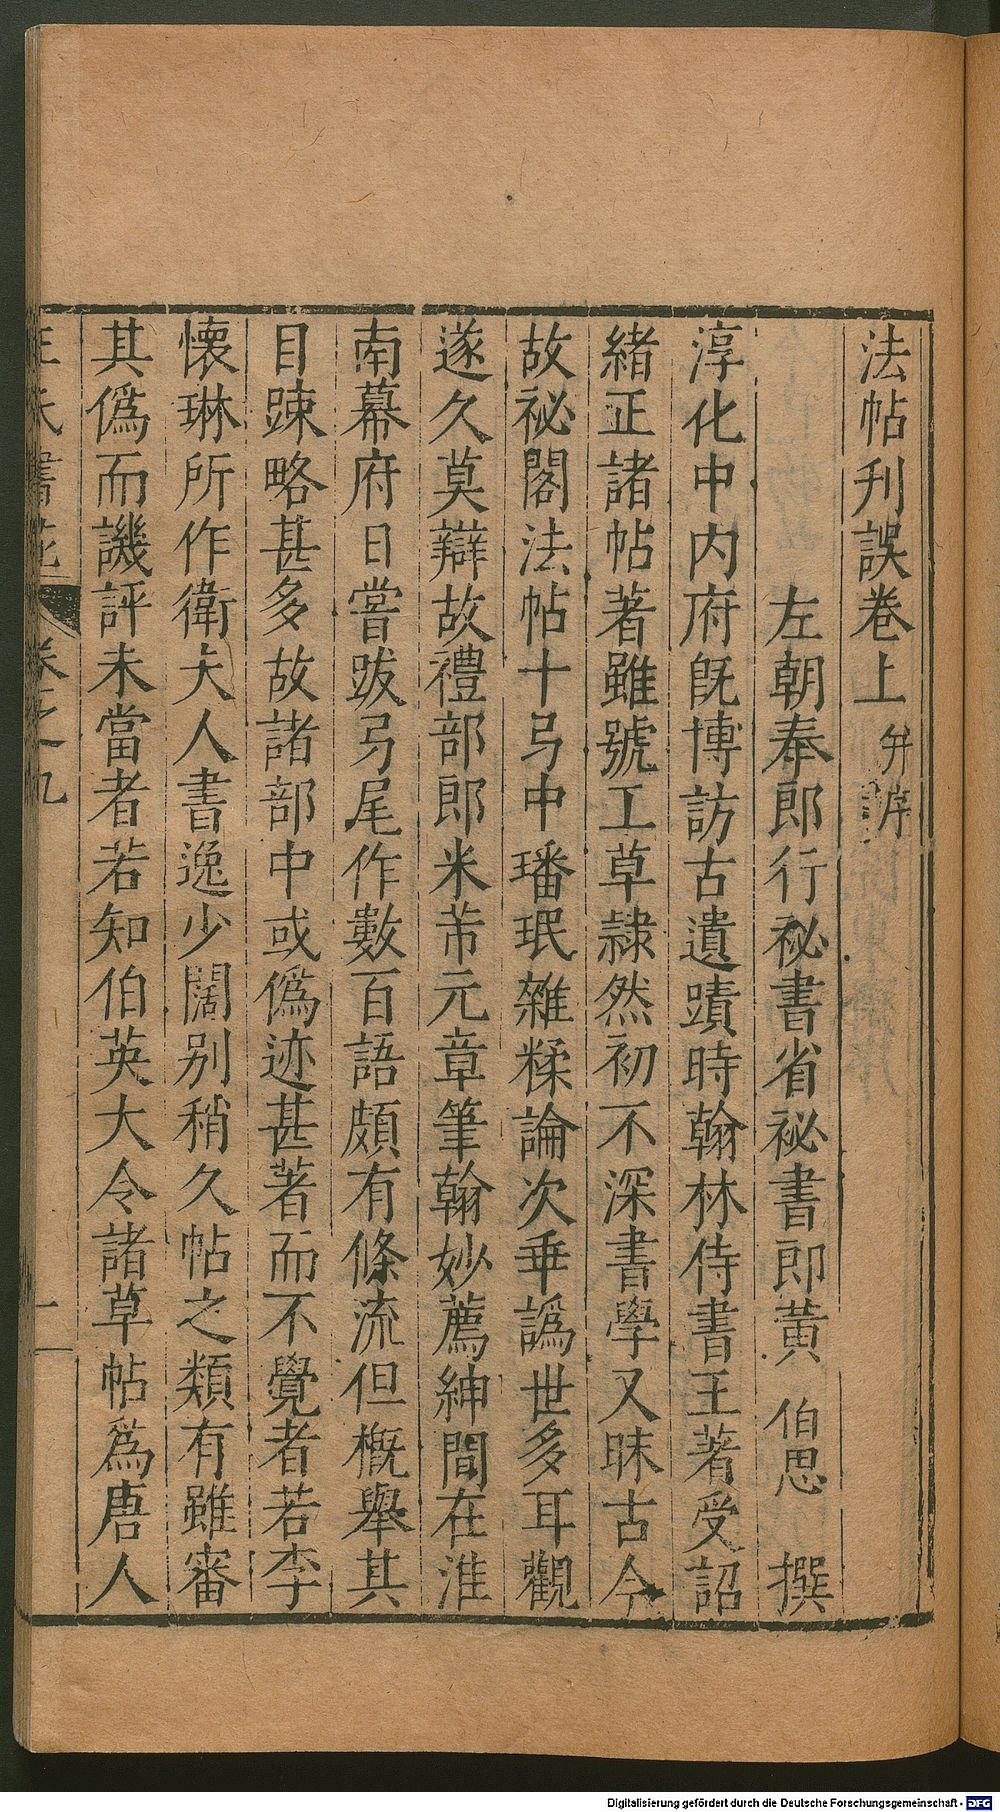 法帖刊誤卷上 并序
左朝奉郎行祕書省祕書郎黄 伯思 撰
淳化中内府旣博訪古遺蹟時翰林侍書王著受詔
緒正諸帖著雖號工草隷然初不深書學又昧古今
故祕閣法帖十弓中璠珉雜糅論次乖譌世多耳觀
遂久莫辯故禮部郎米芾元章筆翰妙薦紳間在淮
南幕府日嘗跋弓尾作數百語頗有條流但概舉其
目踈略甚多故諸部中或僞迹甚著而不覺者若李
懷琳所作衛夫人書逸少闊别稍久帖之類有雖審
其僞而譏評未當者若知伯英大令諸草帖爲唐人
王氏書苑 卷之九 二
Digitalisierung gefördert durch die Deutsche Forschungsgemeinschaft - DFG